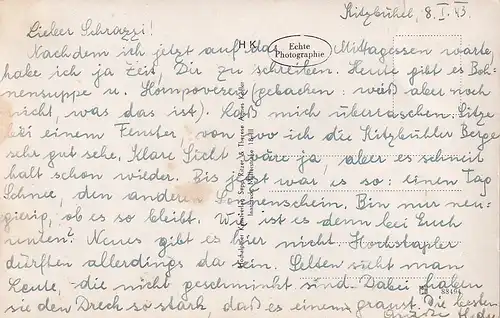 Kitzbühel, 8.I.43.
Lieber Schrazzi!
HK
Echte Photographie
Nachdem ich jetzt auf das Mittagessen warte,
habe ich ja Zeit, Dir zu schreiben. Heute gibt es Boh-
nensuppe u. (gebachen: weiß aber noch
nicht, was das ist). Laß mich überraschen. Sitze
bei einem Fenster, von wo ich die Kitzbühler Berge
sehr gut sehe. Klare Sicht wäre ja aber es schneit
halt schon wieder. Bis jetzt war es so: einen Tag
Schnee, den anderen Sonnenschein. Bin nur neu-
gierig, ob es so bleibt. Wie ist es denn bei Euch
unten? Neues gibt es hier nicht Hochstapler
dürften allerdings da sein. Selten sieht man
Leute, die nicht geschminkt sind. Dabei haben
sie den Dreck so stark, daß es einem graust. Die besten